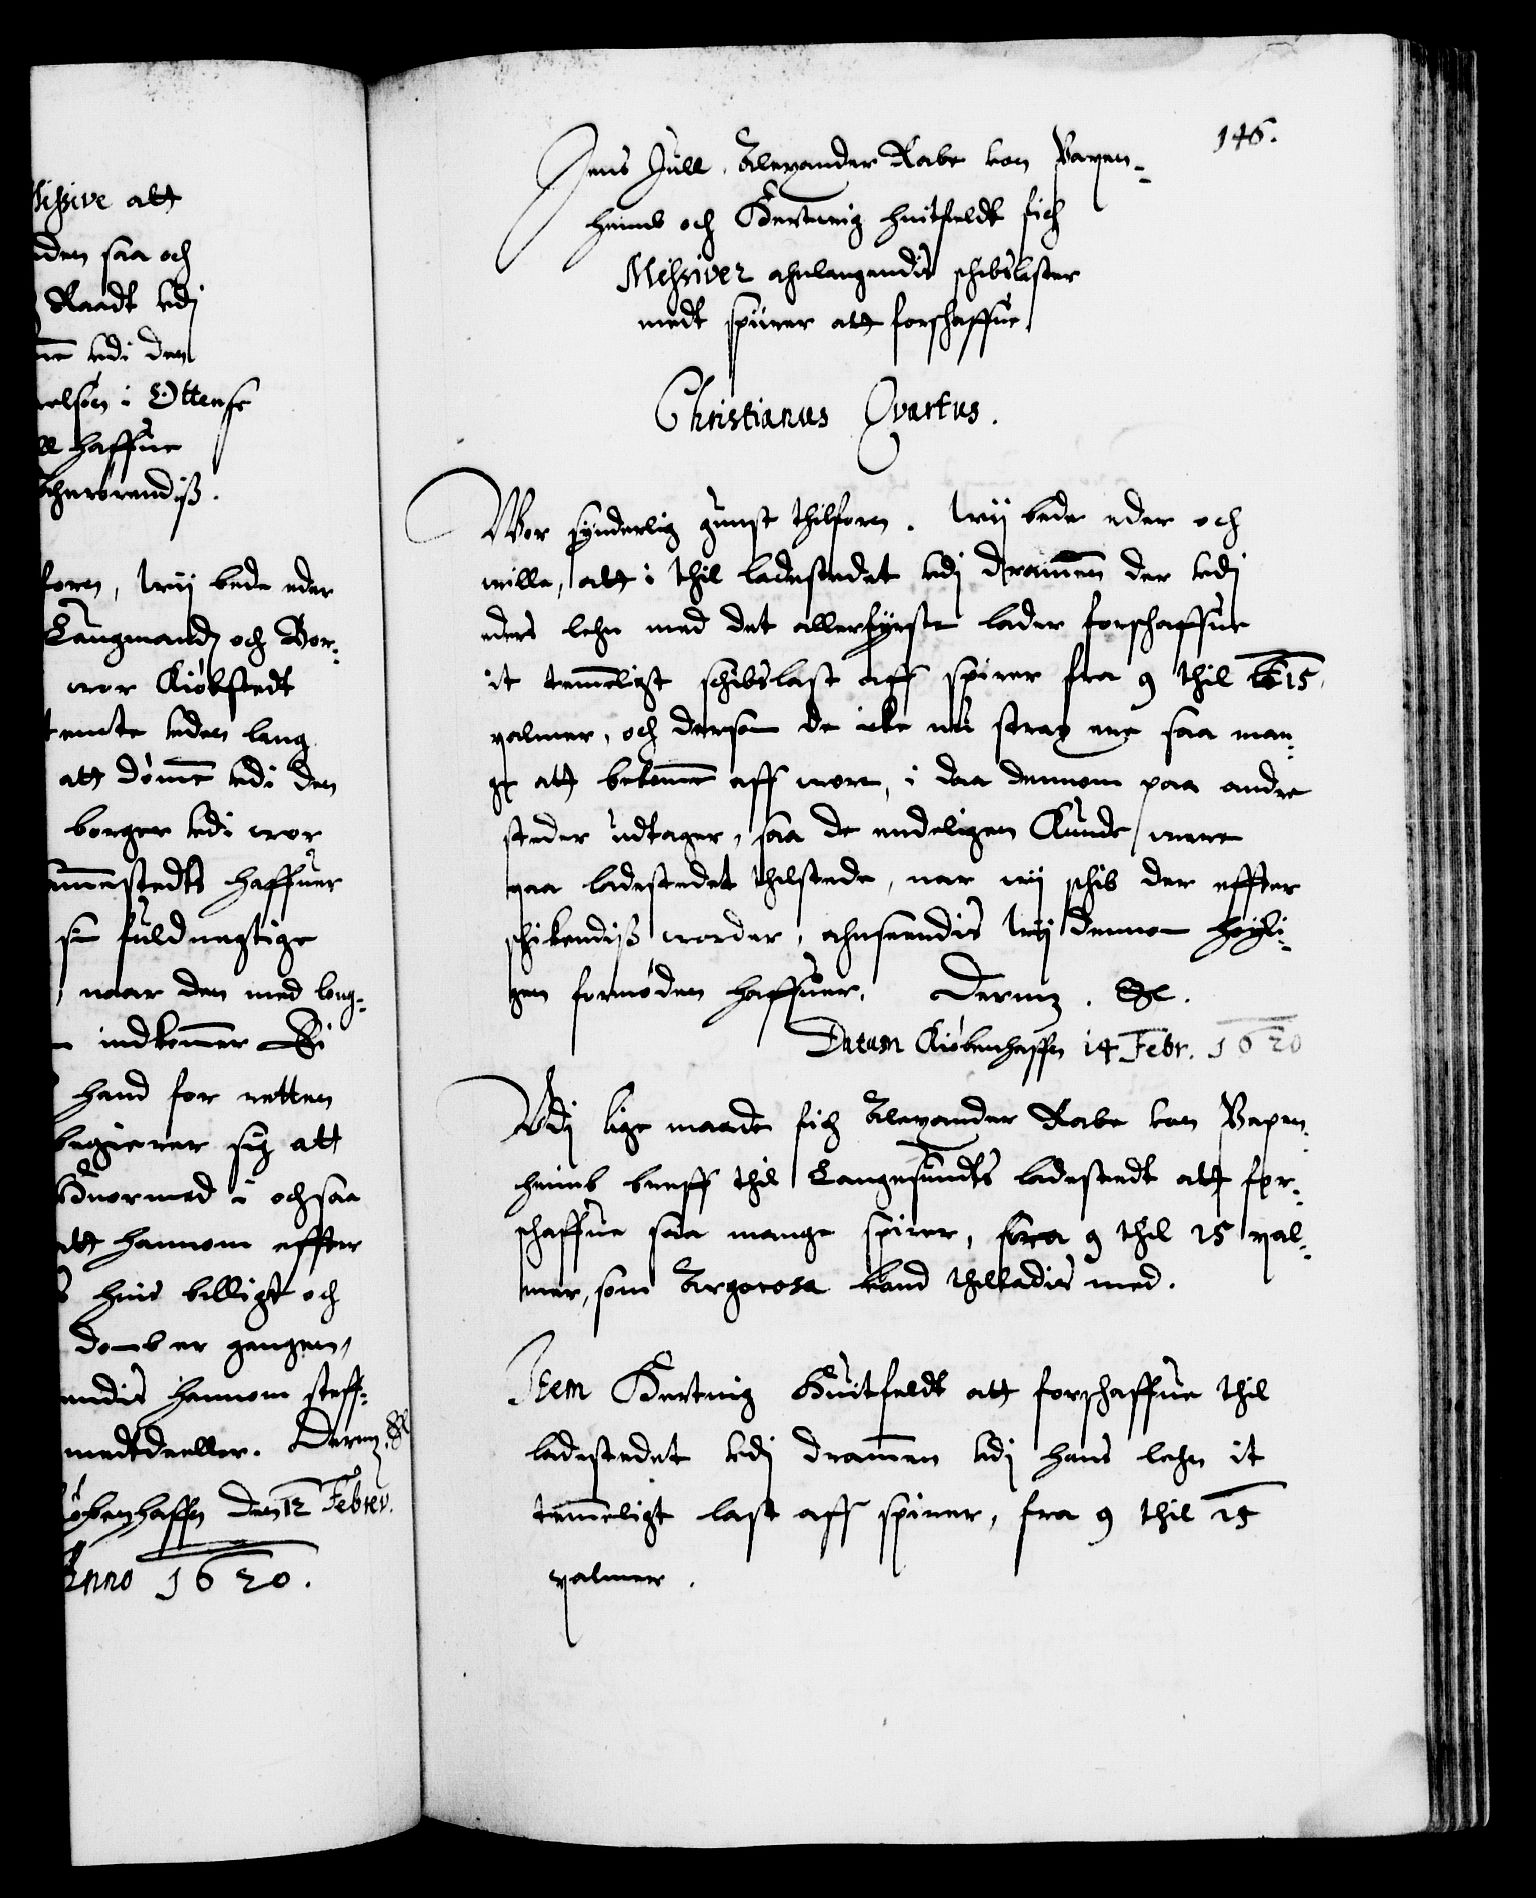 issive att
den saa och
Raadt udj
ne udi den
elsøn i Ottense
ll haffue
rørendiß.
foren, Wij bede eder
Laugmand och Bor-
wor Kiøbstedt
temte uden lang
att dømme udi den
borger udi wor
stedts haffuer
sin fuldmegtige
, naar den med long-
indkommer
hand for retten
begierer sig att
i ochsaa
att hannom effter
s huis billigt och
domb er gangen,
endis hannom steff-
medtdeeller. Dermz. &c
øbenhaffn den 12 Februer.
Anno 1620.
146.
Jens Juell, Alexander Rabe von Papen-
heimb och Hertuig huitfeldt fich
Missiver anlangendis schibslaster
medt spirer att forschaffue.
Christianus Qvartus.
Wor synderlig gunst thilforn. Wij bede eder och
wille, att i thil ladestedet udj Drammen der udj
eders lehn med det allerførste lader forschaffue
it temmeligt schibslast aff spirer fra 9 thil 15
palmer, och dersom de icke nu strax ere saa man-
ge att bekomme aff wore, i daa dennom paa andre
steder udtager, saa de endeligen Kunde were
paa ladestedet thilstede, naar wij schib der effter
schikendiß worder, anseendis Wij dennom høyli-
gen fornøden haffuer. Dermz. &c.
Datum Kiøbenhaffn 14 Febr. 1620
Udj lige maade fich Alexander Rabe von Papen-
heimb breff thil Langesundts ladestedt att for-
schaffue saa mange spirer, fra 9 thil 15 pal-
mer, som Argorosa kand thilladis med.
Item Hertuig Huitfeldt att forschaffue thil
ladestedet udj drammen udj hans lehn it
temmeligt last aff spirer, fra 9 thil 15
palmer.